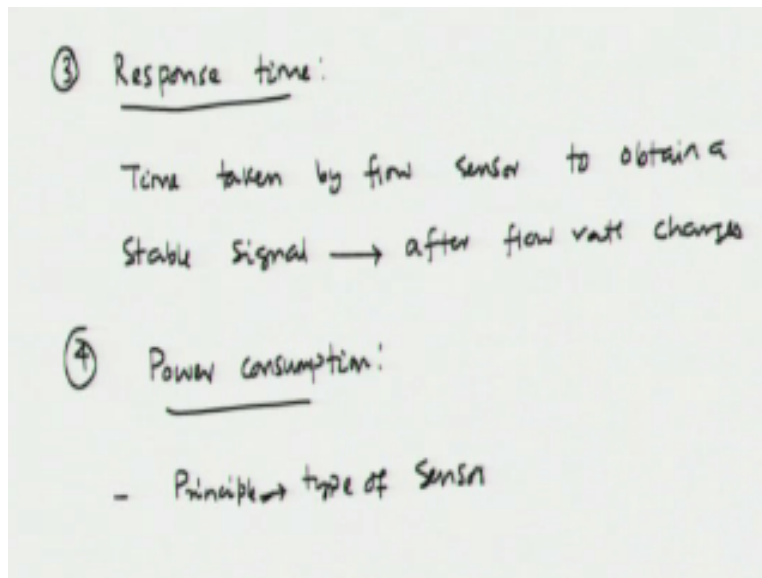 ③ Response time:
Time taken by flow sensor to obtain a
Stable Signal → after flow rate changes
④ Power consumption:
- Principle → type of Sensor